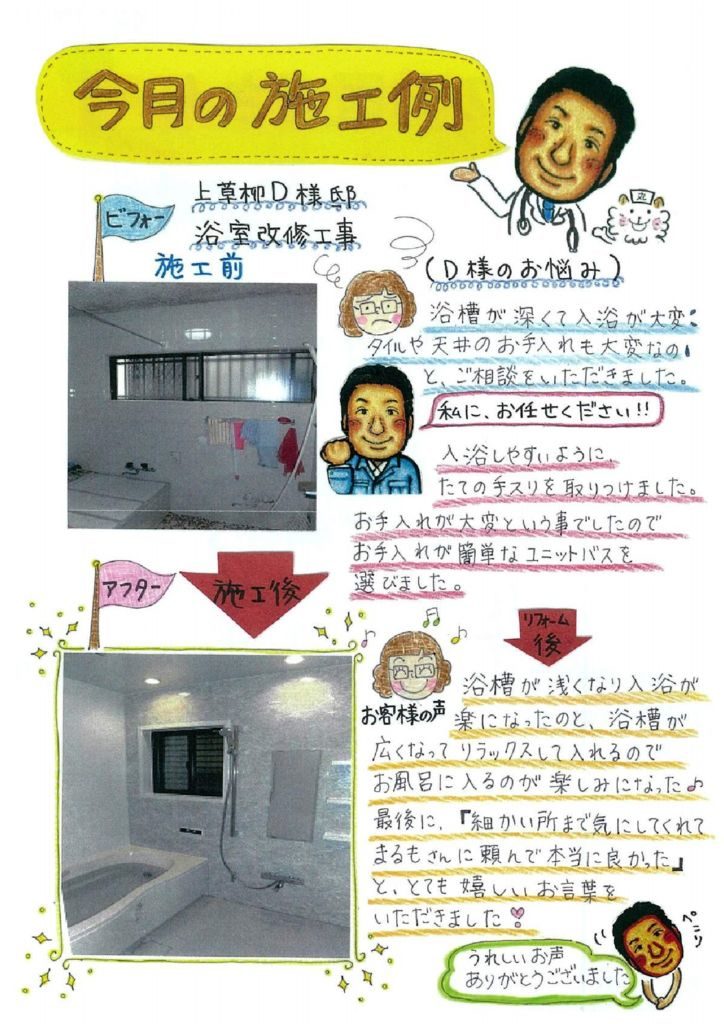 今月の施工例
上草柳D様邸
浴室改修工事
ビフォー
施工前
(D様のお悩み)
浴槽が深くて入浴が大変。
タイルや天井のお手入れも大変なの
と、ご相談をいただきました。
私に、お任せください!!
入浴しやすいように、
たての手スリを取りつけました。
お手入れが大変という事でしたので
お手入れが簡単なユニットバスを
選びました。
アフター
施工後
リフォーム
後
お客様の声
浴槽が浅くなり入浴が
楽になったのと、浴槽が
広くなってリラックスして入れるので
お風呂に入るのが楽しみになった♪
最後に、『細かい所まで気にしてくれて
まるもさんに頼んで本当に良かった』
と、とても嬉しいお言葉を
いただきました
ペコリ
うれしいお声
ありがとうございました